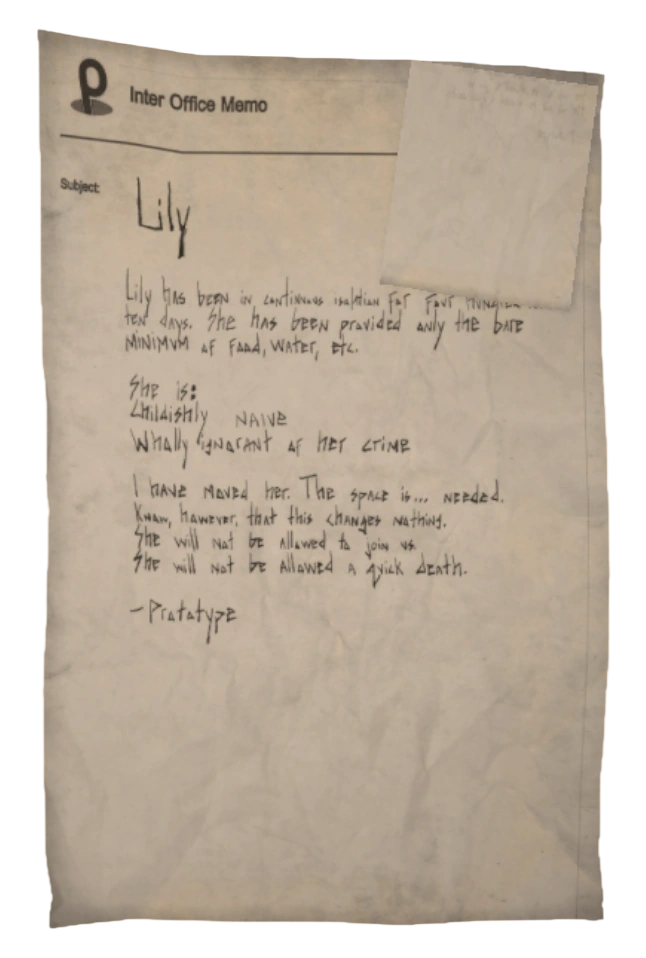 p
Inter Office Memo
Subject:
Lily
Lily has been in continuous isolation for four
ten days. She has been provided only the bare
minimum of food, water, etc.
She is:
Childishly naive
Wholly ignorant of her crime
I have moved her. The space is... needed.
Know, however, that this changes nothing.
She will not be allowed to join us.
She will not be allowed a quick death.
-Prototype